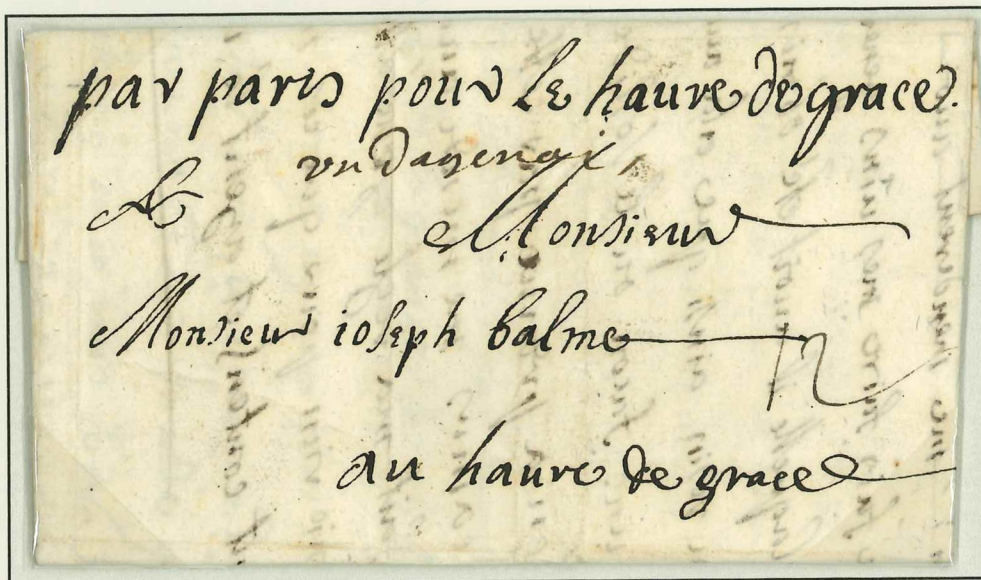 par paris pour le haure de grace.
A Monsieur
Monsieur ioseph balme 12
au haure de grace